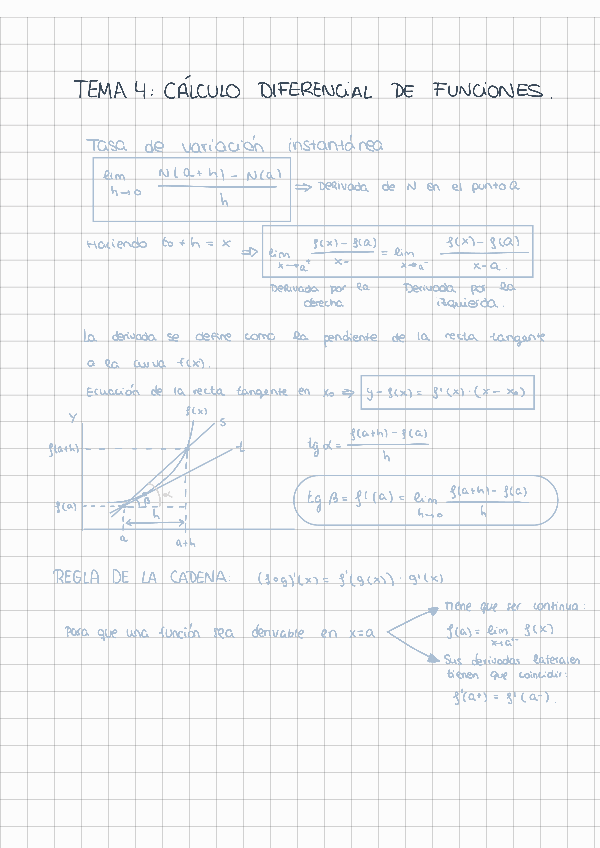 TEMA 4: CÁLCULO DIFERENCIAL DE FUNCIONES.
Tasa de variación instantánea
lim h→0 N(a+h) - N(a) / h ⇒ Derivada de N en el punto a
Haciendo to + h = x ⇒ lim x→a⁺ f(x) - f(a) / x- = lim x→a⁻ f(x) - f(a) / x-a.
Derivada por la derecha
Derivada por la izquierda.
la derivada se define como la pendiente de la recta tangente
a la curva f(x).
Ecuación de la recta tangente en x₀ ⇒ y - f(x) = f'(x) · (x - x₀)
Y
f(x)
s
t
f(a+h)
f(a)
β
α
h
a
a+h
tg α = f(a+h) - f(a) / h
tg β = f'(a) = lim h→0 f(a+h) - f(a) / h
REGLA DE LA CADENA: (f∘g)'(x) = f'(g(x)) · g'(x)
Para que una función sea derivable en x=a
Tiene que ser continua:
f(a) = lim f(x)
Sus derivadas laterales
tienen que coincidir:
f'(a+) = f'(a-).